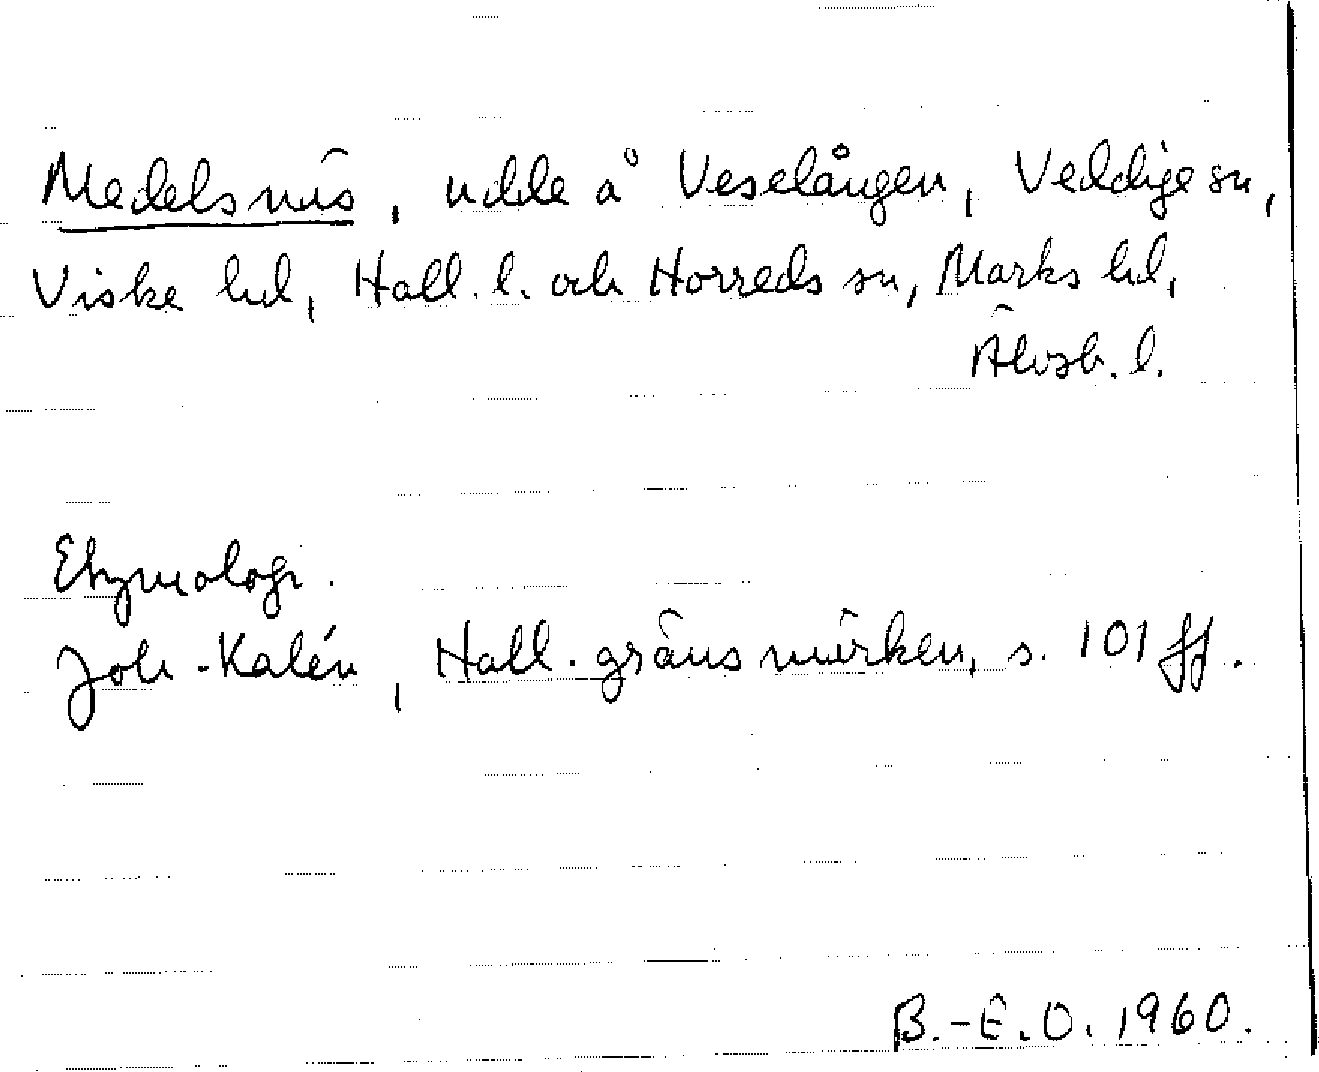 Medelsnäs, udde å Veselången, Veddige sn,
Viske hd, Hall. l. och Horreds sn, Marks hd,
Älvsb. l.
Etymologi.
Joh. Kalén, Hall. gränsmärken, s. 101 ff.
B.-E.O. 1960.